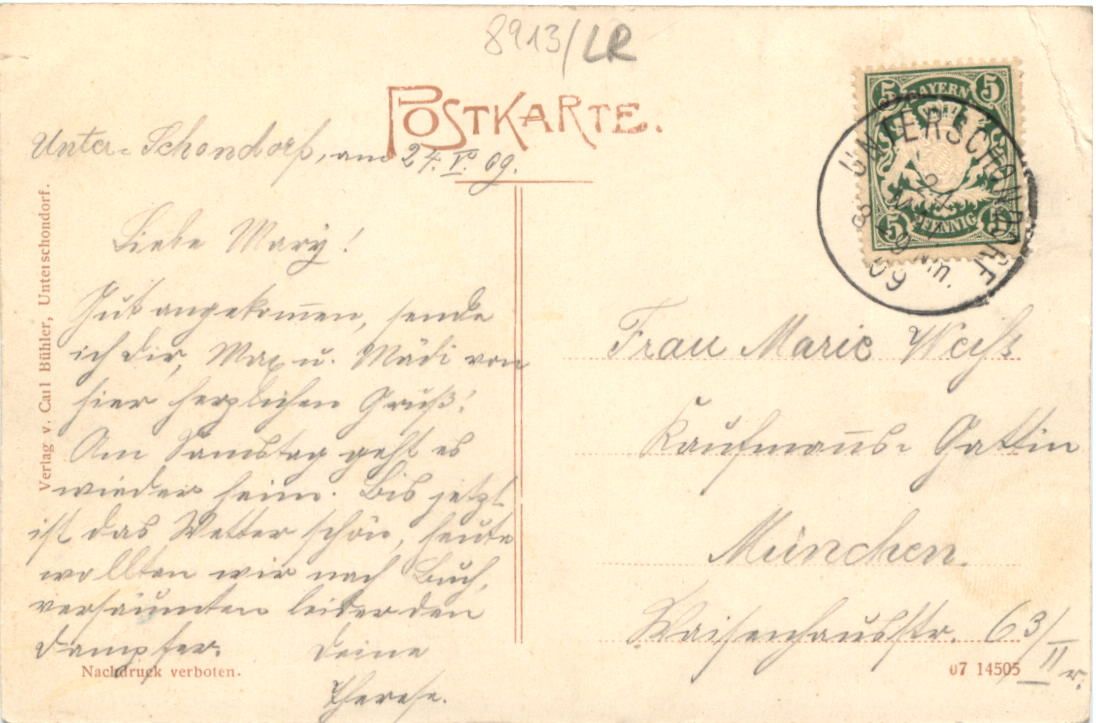 8913/LR
POSTKARTE.
Unter-Schondorf, am 24. V. 09.
Liebe Mary!
Gut angekom̅en, sende
ich dir, Max u. Mädi von
hier herzlichen Gruß!
Am Samstag geht es
wieder heim. Bis jetzt
ist das Wetter schön, heute
wollten wir nach Buch,
versäumten leider den
Dampfer. Deine
Therese.
Verlag v. Carl Bühler, Unterschondorf.
Nachdruck verboten.
5 BAYERN 5
5 PFENNIG 5
UNTERSCHONDORF
24
MAI
8-9 Nm.
09
Frau Marie Weiß
Kaufman̅s-Gattin
München.
Waisenhausstr. 63/II r.
07 14505